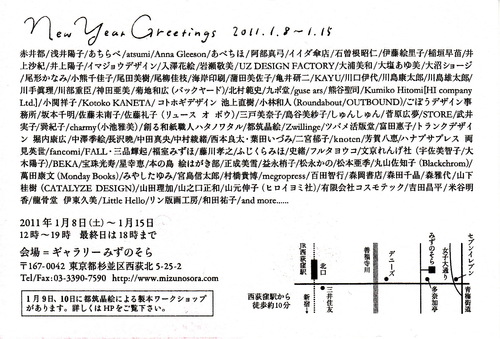 New Year Greetings 2011.1.8〜1.15
赤井都/浅井陽子/あちらべ/atsumi/Anna Gleeson/あべちほ/阿部真弓/イイダ傘店/石曽根昭仁/伊藤絵里子/稲垣早苗/井
上沙紀/井上陽子/イマジョウデザイン/入澤花絵/岩瀬敬美/UZ DESIGN FACTORY/大浦美和/大塩あゆ美/大沼ショージ
/尾形かなみ/小熊千佳子/尾田美樹/尾柳佳枝/海岸印刷/蒲田美佐子/亀井研二/KAYU/川口伊代/川島康太郎/川島雄太郎
/川手真理/川部重臣/神田亜美/菊地和広(バックヤード)/北村範史/九ポ堂/guse ars/熊谷聖司/Kumiko Hitomi[HI company
Ltd.]/小関祥子/Kotoko KANETA/コトホギデザイン 池上直樹/小林和人(Roundabout/OUTBOUND)/ごぼうデザイン事
務所/坂本千明/佐藤未南子/佐藤礼子(リュース オ ポウ)/三戸美奈子/島谷美紗子/しゅしゅ/菅原広夢/STORE/武井
実子/興紀子/charmy(小池雅美)/創る和紙職人ハタノワタル/都筑晶絵/Zwillinge/ツバメ活版堂/富田惠子/トランクデザイ
ン 堀内康広/中澤季絵/長沢暁/中田真央/中村綾緒/西本良太・葉田いづみ/二宮郁子/knoten/芳賀八恵/ハナブサプレス 両
見英世/fancomi/FALL・三品輝起/福室みずほ/藤川孝之/ふじくらみほ/船山改/フルタヨウコ/文京れんげ社(宇佐美智子・大
木陽子)/BEKA/宝珠光寿/星幸恵/本の島 絵はがき部/正成美雪/益永梢子/松永かの/松本亜季/丸山佐知子(Blackchrom)/
萬田康文(Monday Books)/みやしたゆみ/宮島信太郎/村橋貴博/megropress/百田智行/森岡書店/森田千晶/森雅代/山下
桂樹(CATALYZE DESIGN)/山田理加/山之口正和/山元伸子(ヒロイヨミ社)/有限会社コスモテック/吉田昌平/米谷明
香/龍骨堂 伊東久美/Little Hello/リン版画工房/和田祐子/and more......
2011年1月8日(土)〜1月15日
12時〜19時 最終日は18時まで
会場=ギャラリーみずのそら
〒167-0042 東京都杉並区西荻北5-25-2
Tel/Fax:03-3390-7590 http://www.mizunosora.com
1月9日、10日に都筑晶絵による製本ワークショップ
があります。詳しくはHPをご覧下さい。
JR西荻窪駅
北口
新宿↓
三井住友
善福寺川
デニーズ
みずのそら
女子大通り
多奈加亭
セブンイレブン
青梅街道
西荻窪駅から
徒歩約10分